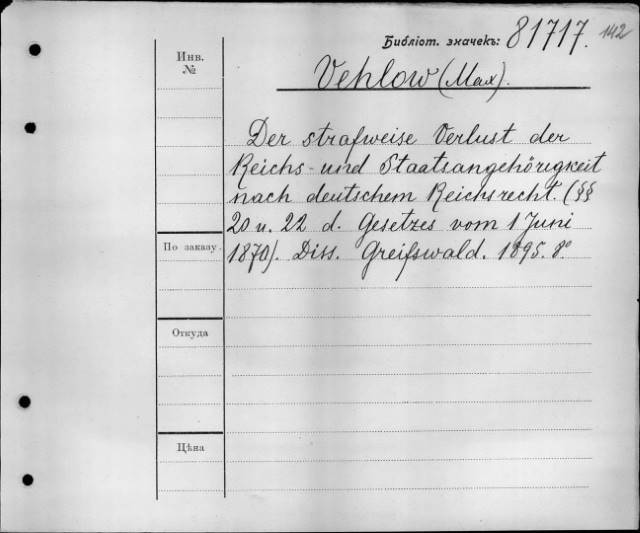 Библіот. значекъ: 81717. 142
Инв.
№
Vehlow (Max).
Der strafweise Verlust der
Reichs- und Staatsangehörigkeit
nach deutschem Reichsrecht. (§§
20 u. 22 d. Gesetzes vom 1 Juni
По заказу.
1870). Diss. Greifswald. 1895. 8°
Откуда
Цѣна